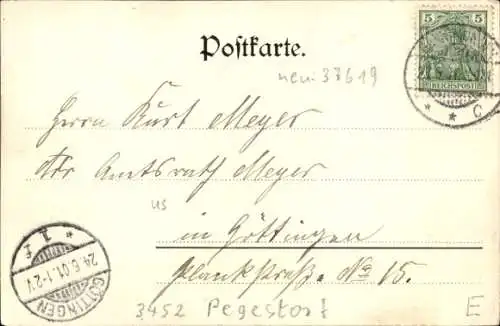 5 5
REICHSPOST
Postkarte.
neu: 37619
Herrn Kurt Meyer
Amtsrath Meyer
us
in Göttingen
Plankstraße. No 15.
* 1 f
24.6.01.1-2V.
GÖTTINGEN
3452 Pegestorf
E